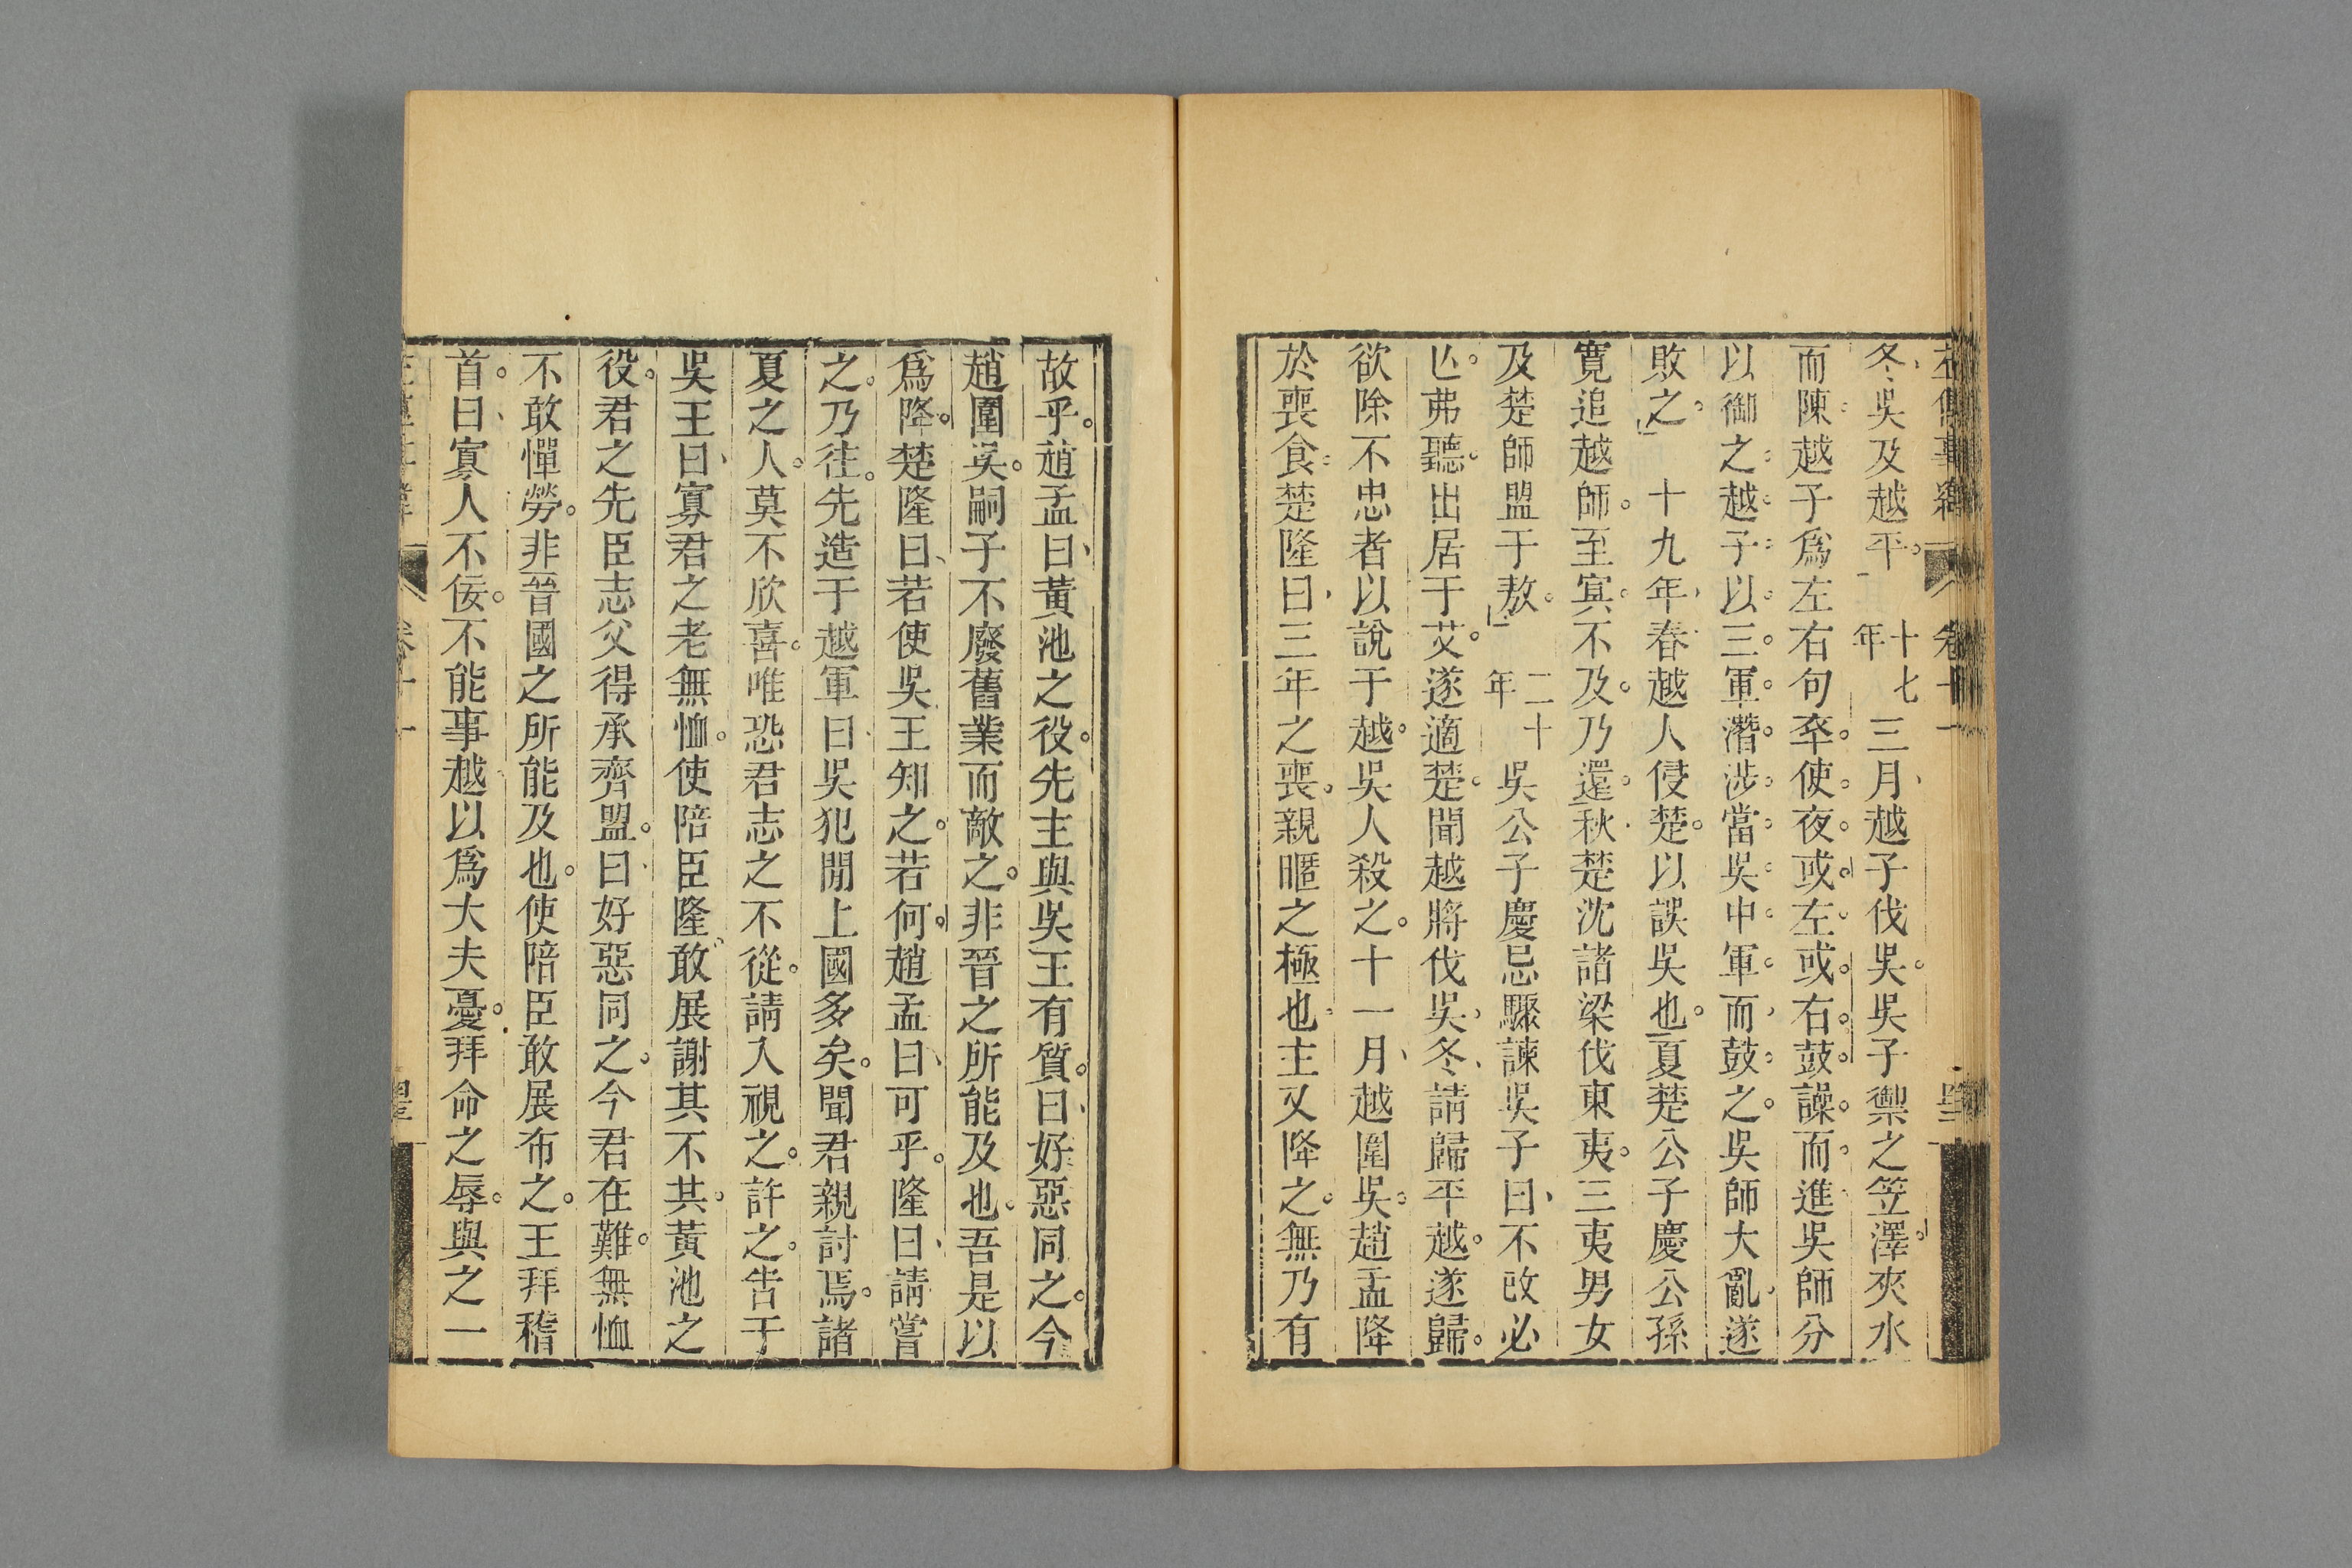 冬吳及越平。十七年三月越子伐吳。吳子禦之笠澤。夾水
而陳。越子爲左右句卒。使夜。或左。或右。鼓譟。而進吳師分
以御之。越子以三軍。潛涉當吳中軍。而鼓之。吳師大亂遂
敗之。十九年春越人侵楚。以誤吳也。夏楚公子慶公孫
寛追越師。至冥不及。乃還。秋楚沈諸梁伐東夷。三夷男女
及楚師盟于敖。二十年吳公子慶忌驟諫吳子曰不改必
亾。弗聽。出居于艾。遂適楚。聞越將伐吳。冬請歸平越。遂歸。
欲除不忠者以說于越。吳人殺之。十一月越圍吳。趙孟降
於喪食。楚隆曰三年之喪。親暱之極也。主又降之。無乃有
故乎。趙孟曰黃池之役。先主與吳王有質。曰好惡同之。今
越圍吳。嗣子不廢舊業而敵之。非晉之所能及也。吾是以
爲降。楚隆曰若使吳王知之。若何。趙孟曰可乎。隆曰請嘗
之。乃往。先造于越軍曰吳犯閒上國多矣。聞君親討焉。諸
夏之人。莫不欣喜。唯恐君志之不從。請入視之。許之。告于
吳王曰寡君之老無恤。使陪臣隆敢展謝其不共。黃池之
役。君之先臣志父得承齊盟。曰好惡同之。今君在難。無恤
不敢憚勞。非晉國之所能及也。使陪臣敢展布之。王拜稽
首。曰寡人不佞。不能事越以爲大夫憂。拜命之辱。與之一